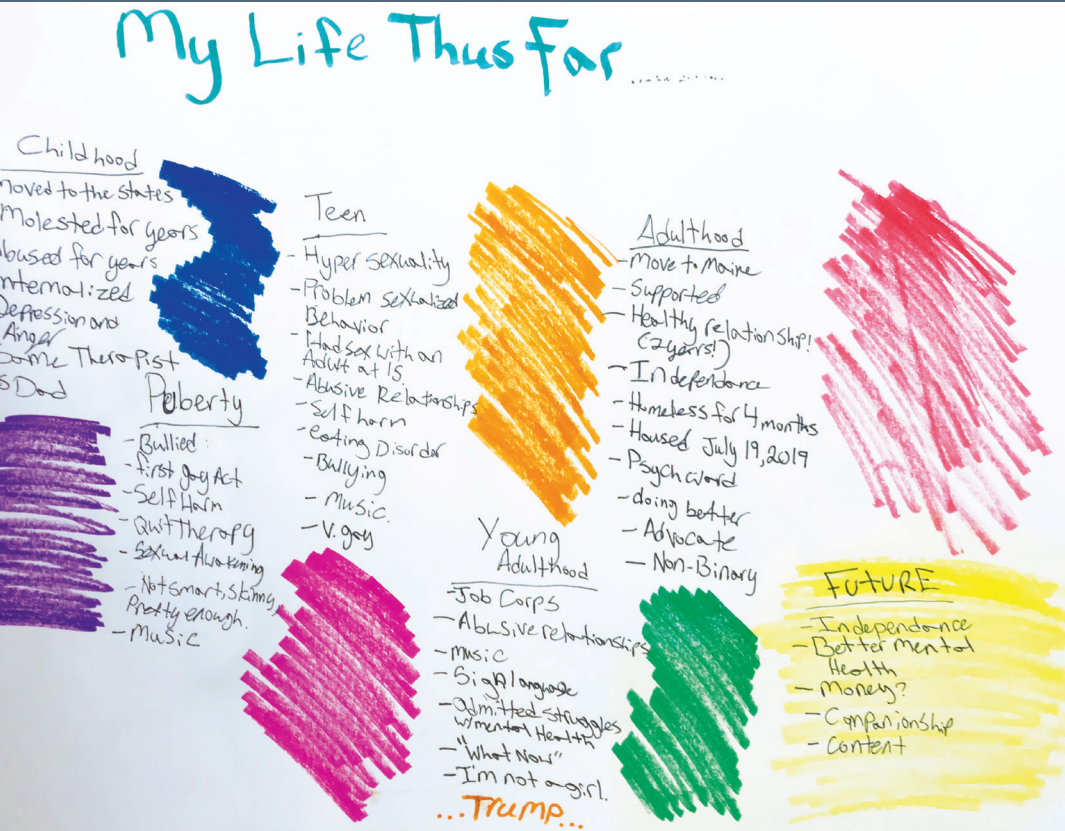 My Life Thus Far...............
Childhood
Moved to the States
Molested for years
bused for years
nternalized
Depression and
Anger
Same Therapist
s Dad
Puberty
- Bullied:
- first gay Act
- Self Harm
- Quit Therapy
- Sexual Awakening
- Not smart, skinny,
Pretty enough.
- Music
Teen
- Hyper sexuality
- Problem sexualized
Behavior
- Had sex with an
Adult at 15.
- Abusive Relationships
- Self harm
- eating Disorder
- Bullying
- Music.
- V. gay
Young
Adulthood
- Job Corps
- Abusive relationships
- music
- Sign language
- admitted struggles
w/mental Health
- "What Now"
- I'm not a girl.
...Trump...
Adulthood
- Move to Maine
- Supported
- Healthy relationship!
(2 years!)
- Independance
- Homeless for 4 months
- Housed July 19, 2019
- Psych ward
- doing better
- Advocate
- Non-Binary
FUTURE
- Independance
- Better mental
Health
- Money?
- Companionship
- Content